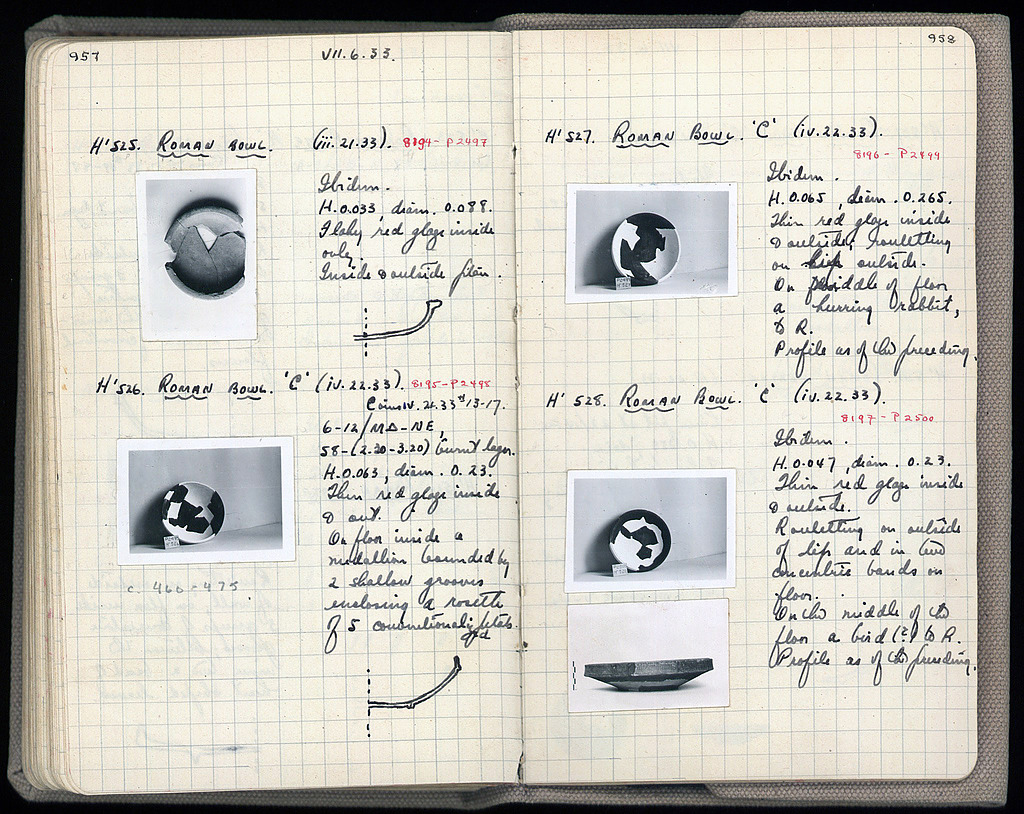 957
VII.6.33.
H'525. ROMAN BOWL. (iii.21.33). 8194 - P2497
Ibidem.
H. 0.033, diam. 0.088.
Flaky red glaze inside
only.
Inside & outside plain.
H'526. ROMAN BOWL. 'C' (iv.22.33). 8195-P2498
Coins IV.21.33 #13-17.
6-12/MΔ-NE,
58-(2.20-3.20) burnt layer.
H. 0.063, diam. 0.23.
Thin red glaze inside
& out.
On floor inside a
medallion bounded by
2 shallow grooves
enclosing a rosette
of 5 conventionalized petals.
c. 460-475
958
H'527. ROMAN BOWL. 'C' (iv.22.33).
8196 - P2499
Ibidem.
H. 0.065, diam. 0.265.
Thin red glaze inside
& outside; rouletting
on outside.
On middle of floor
a running rabbit,
to R.
Profile as of the preceding.
H' 528. ROMAN BOWL. 'C' (iv.22.33).
8197 - P2500
Ibidem.
H. 0.047, diam. 0.23.
Thin red glaze inside
& outside.
Rouletting on outside
of lip and in two
concentric bands on
floor.
On the middle of the
floor a bird (?) to R.
Profile as of the preceding.